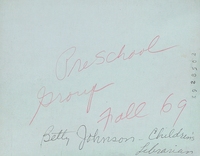 Pre School
Group
Fall 69
Betty Johnson - Children's
Librarian